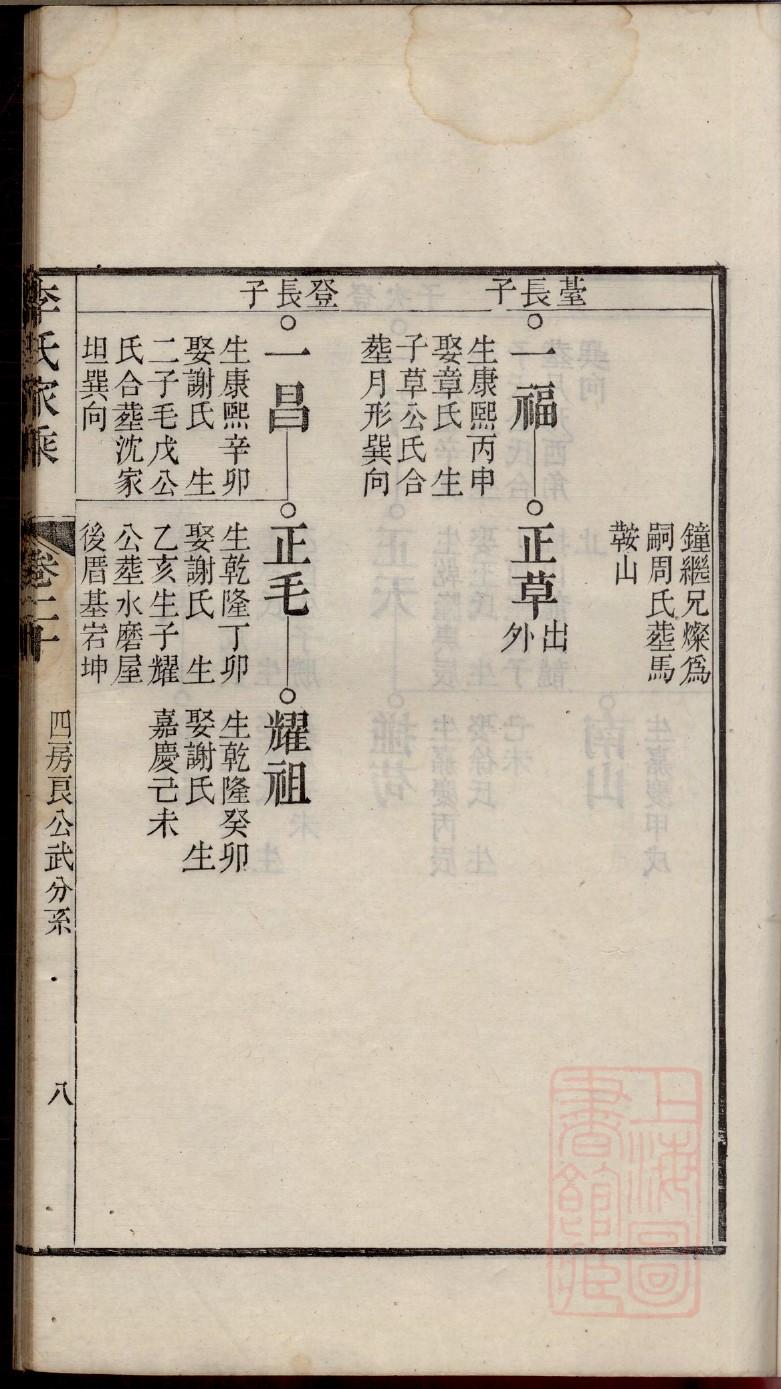 鐘繼兄燦為
嗣周氏塟馬
鞍山
臺長子
一福
生康熙丙申
娶章氏 生
子草公氏合
塟月形巽向
正草出外
登長子
一昌
生康熙辛卯
娶謝氏 生
二子毛戊公
氏合塟沈家
坦巽向
正毛
生乾隆丁卯
娶謝氏 生
乙亥生子耀
公塟水磨屋
後厝基宕坤
耀祖
生乾隆癸卯
娶謝氏 生
嘉慶己未
李氏家乘
卷二十
四房良公武分系
八
上海圖書館藏